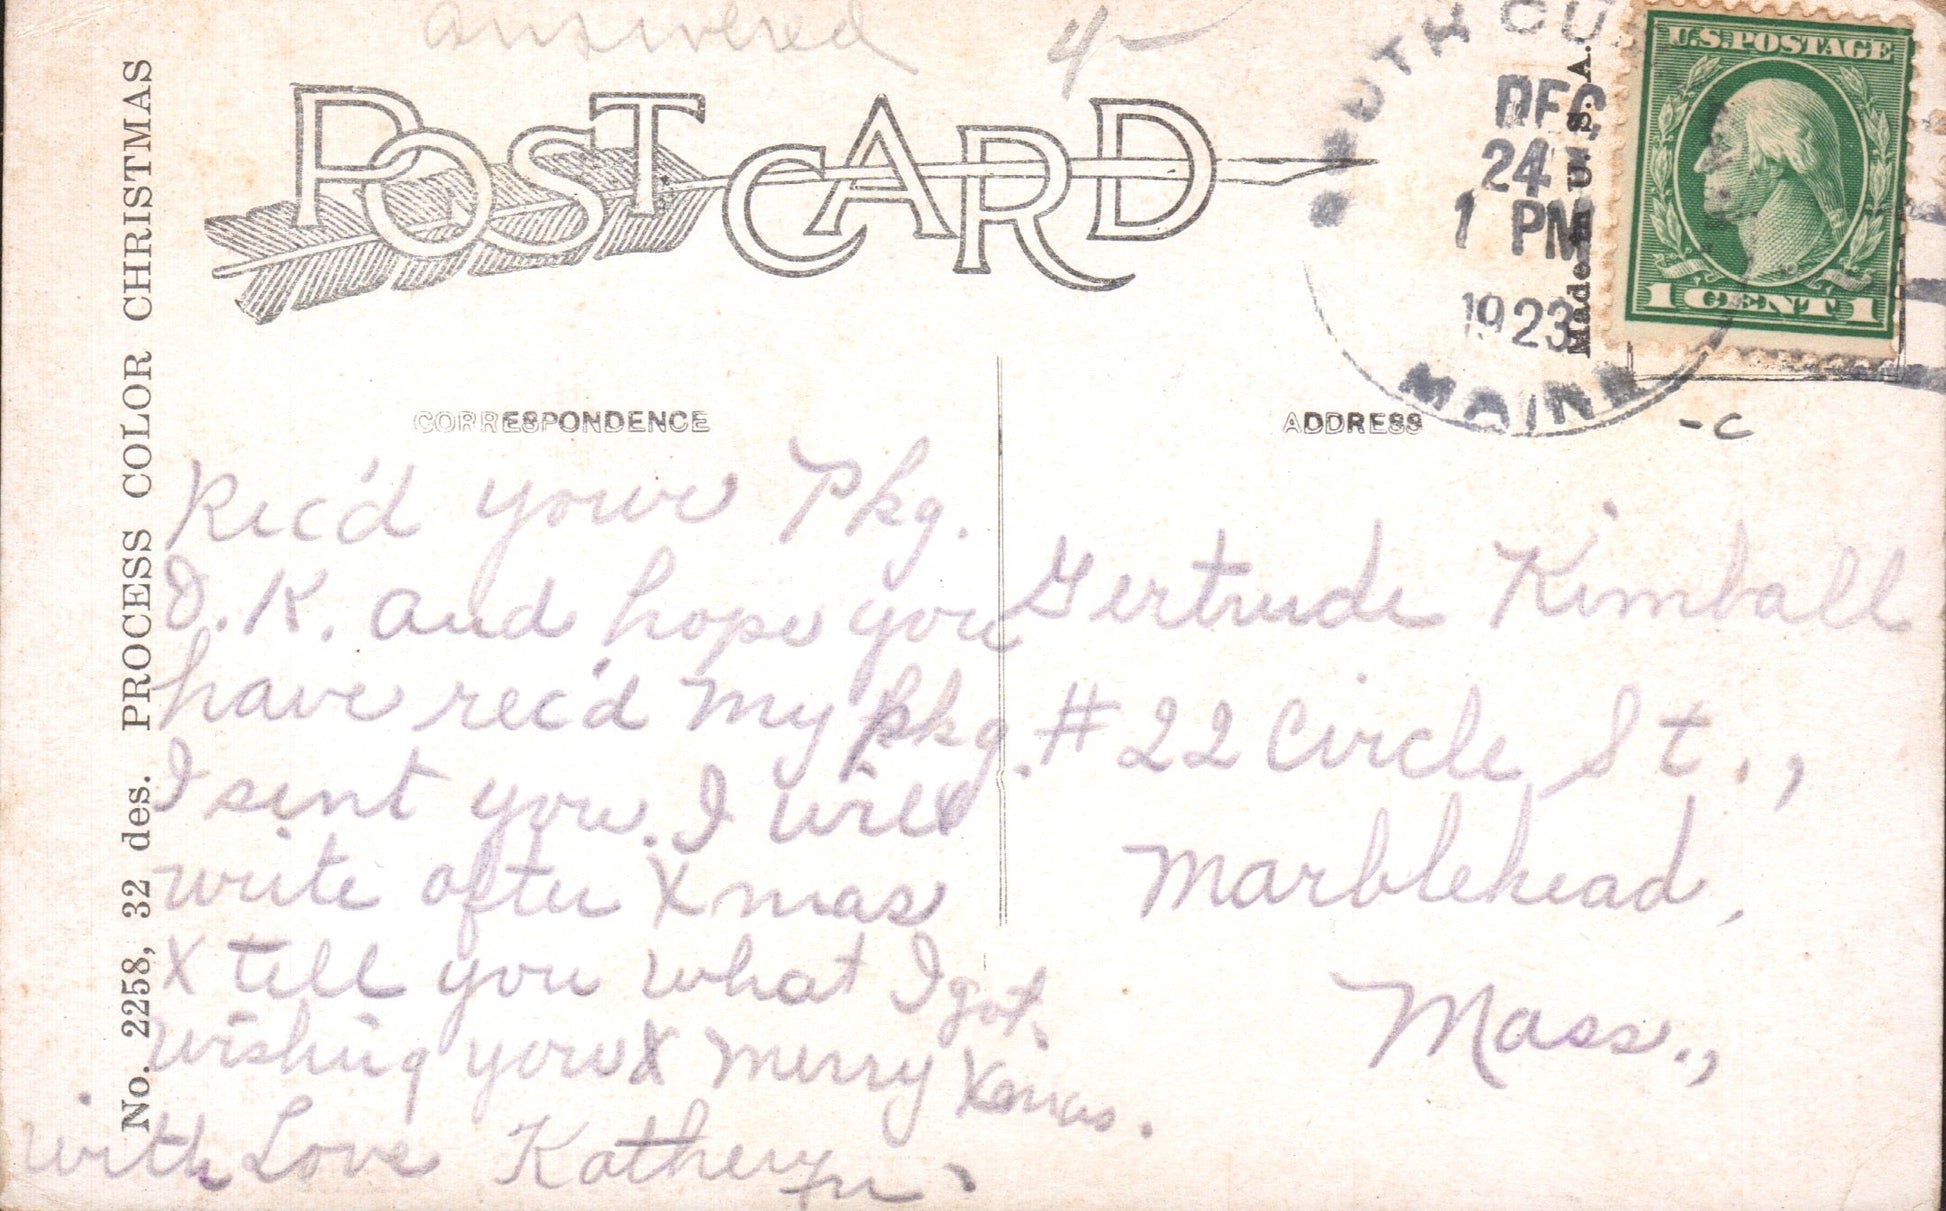 answered
POST CARD
SOUTH
DEC
24
1 PM
1923
MAINE
Made in U.S.A.
U.S.POSTAGE
1 CENT 1
No. 2258, 32 des. PROCESS COLOR CHRISTMAS
CORRESPONDENCE
ADDRESS
-c
Rec'd your Pkg.
O.K. and hope you
have rec'd my pkg.
I sent you. I will
write after Xmas
& tell you what I got.
Wishing you X Merry Xmas.
With Love Katheryn.
Gertrude Kimball
#22 Circle St.,
Marblehead,
Mass.,